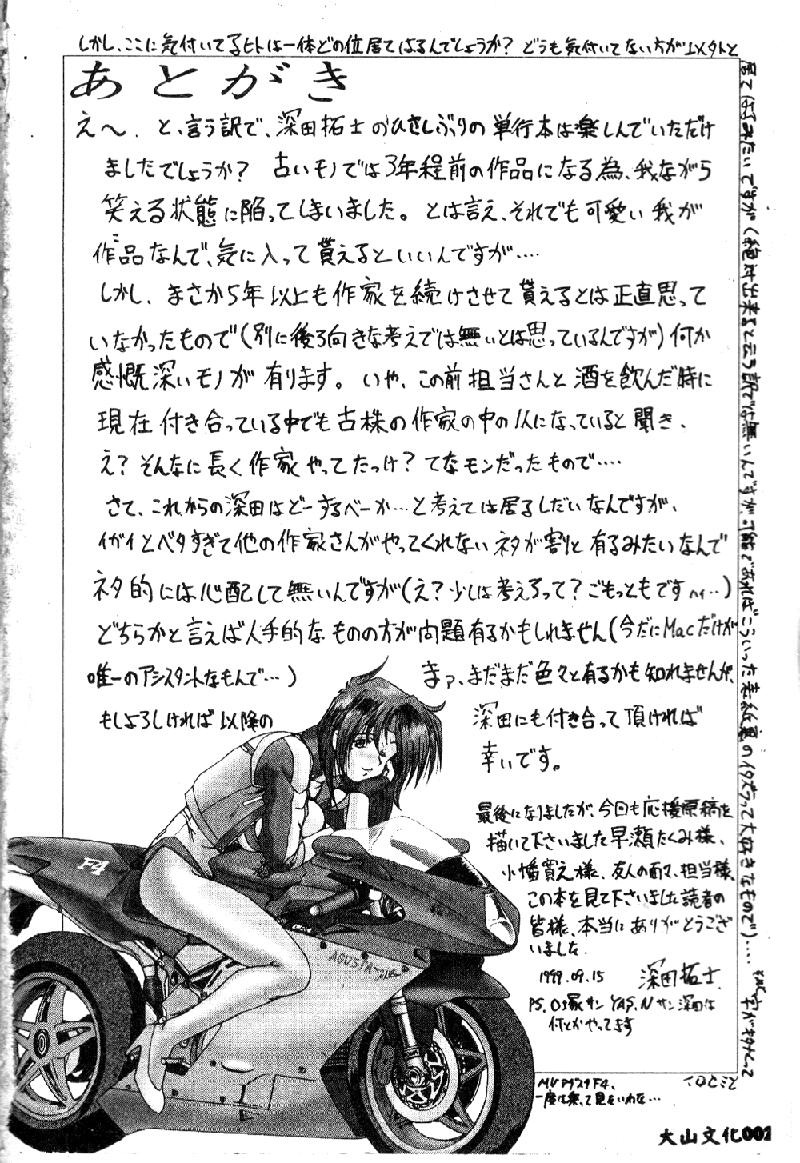 しかし、ここに気付いてるヒトは一体どの位居てはるんでしょうか? どうも気付いてない方が
あとがき
え〜、と、言う訳で、深田拓士のひさしぶりの単行本は楽しんでいただけ
ましたでしょうか? 古いモノでは3年程前の作品になる為、我ながら
笑える状態に陥ってしまいました。とは言え、それでも可愛い我が
作品なんで、気に入って貰えるといいんですが‥‥
しかし、まさか5年以上も作家を続けさせて貰えるとは正直思って
いなかったもので(別に後ろ向きな考えでは無いとは思っているんですが)何か
感慨深いモノが有ります。いや、この前担当さんと酒を飲んだ時に
現在付き合っている中でも古株の作家の中の1人になっていると聞き、
え? そんなに長く作家やってたっけ? てなモンだったもので‥‥
さて、これからの深田はどーするべーか…と考えては居るしだいなんですが、
イガイとベタすぎて他の作家さんがやってくれないネタが割と有るみたいなんで
ネタ的には心配して無いんですが(え? 少しは考えろって? ごもっともですハイ…)
どちらかと言えば人手的なものの方が問題有るかもしれません(今だにMacだけが
唯一のアシスタントなもんで…)
まァ、まだまだ色々と有るかも知れませんが、
もしよろしければ以降の
深田にも付き合って頂ければ
幸いです。
最後になりましたが、今回も応援原稿を
描いて下さいました早瀬たくみ様、
小幡買え様、友人の面々、担当様、
この本を見て下さいました読者の
皆様、本当にありがとうござ
いました
1999.09.15 深田拓士
何とかやってます
F4
AGUSTA
MVアグスタF4、
大山文化001
居てはるみたいですが(絶対出来ると云う訳では無いんですが可能であればこういった表紙裏のイタズラって大好きなもので)‥‥